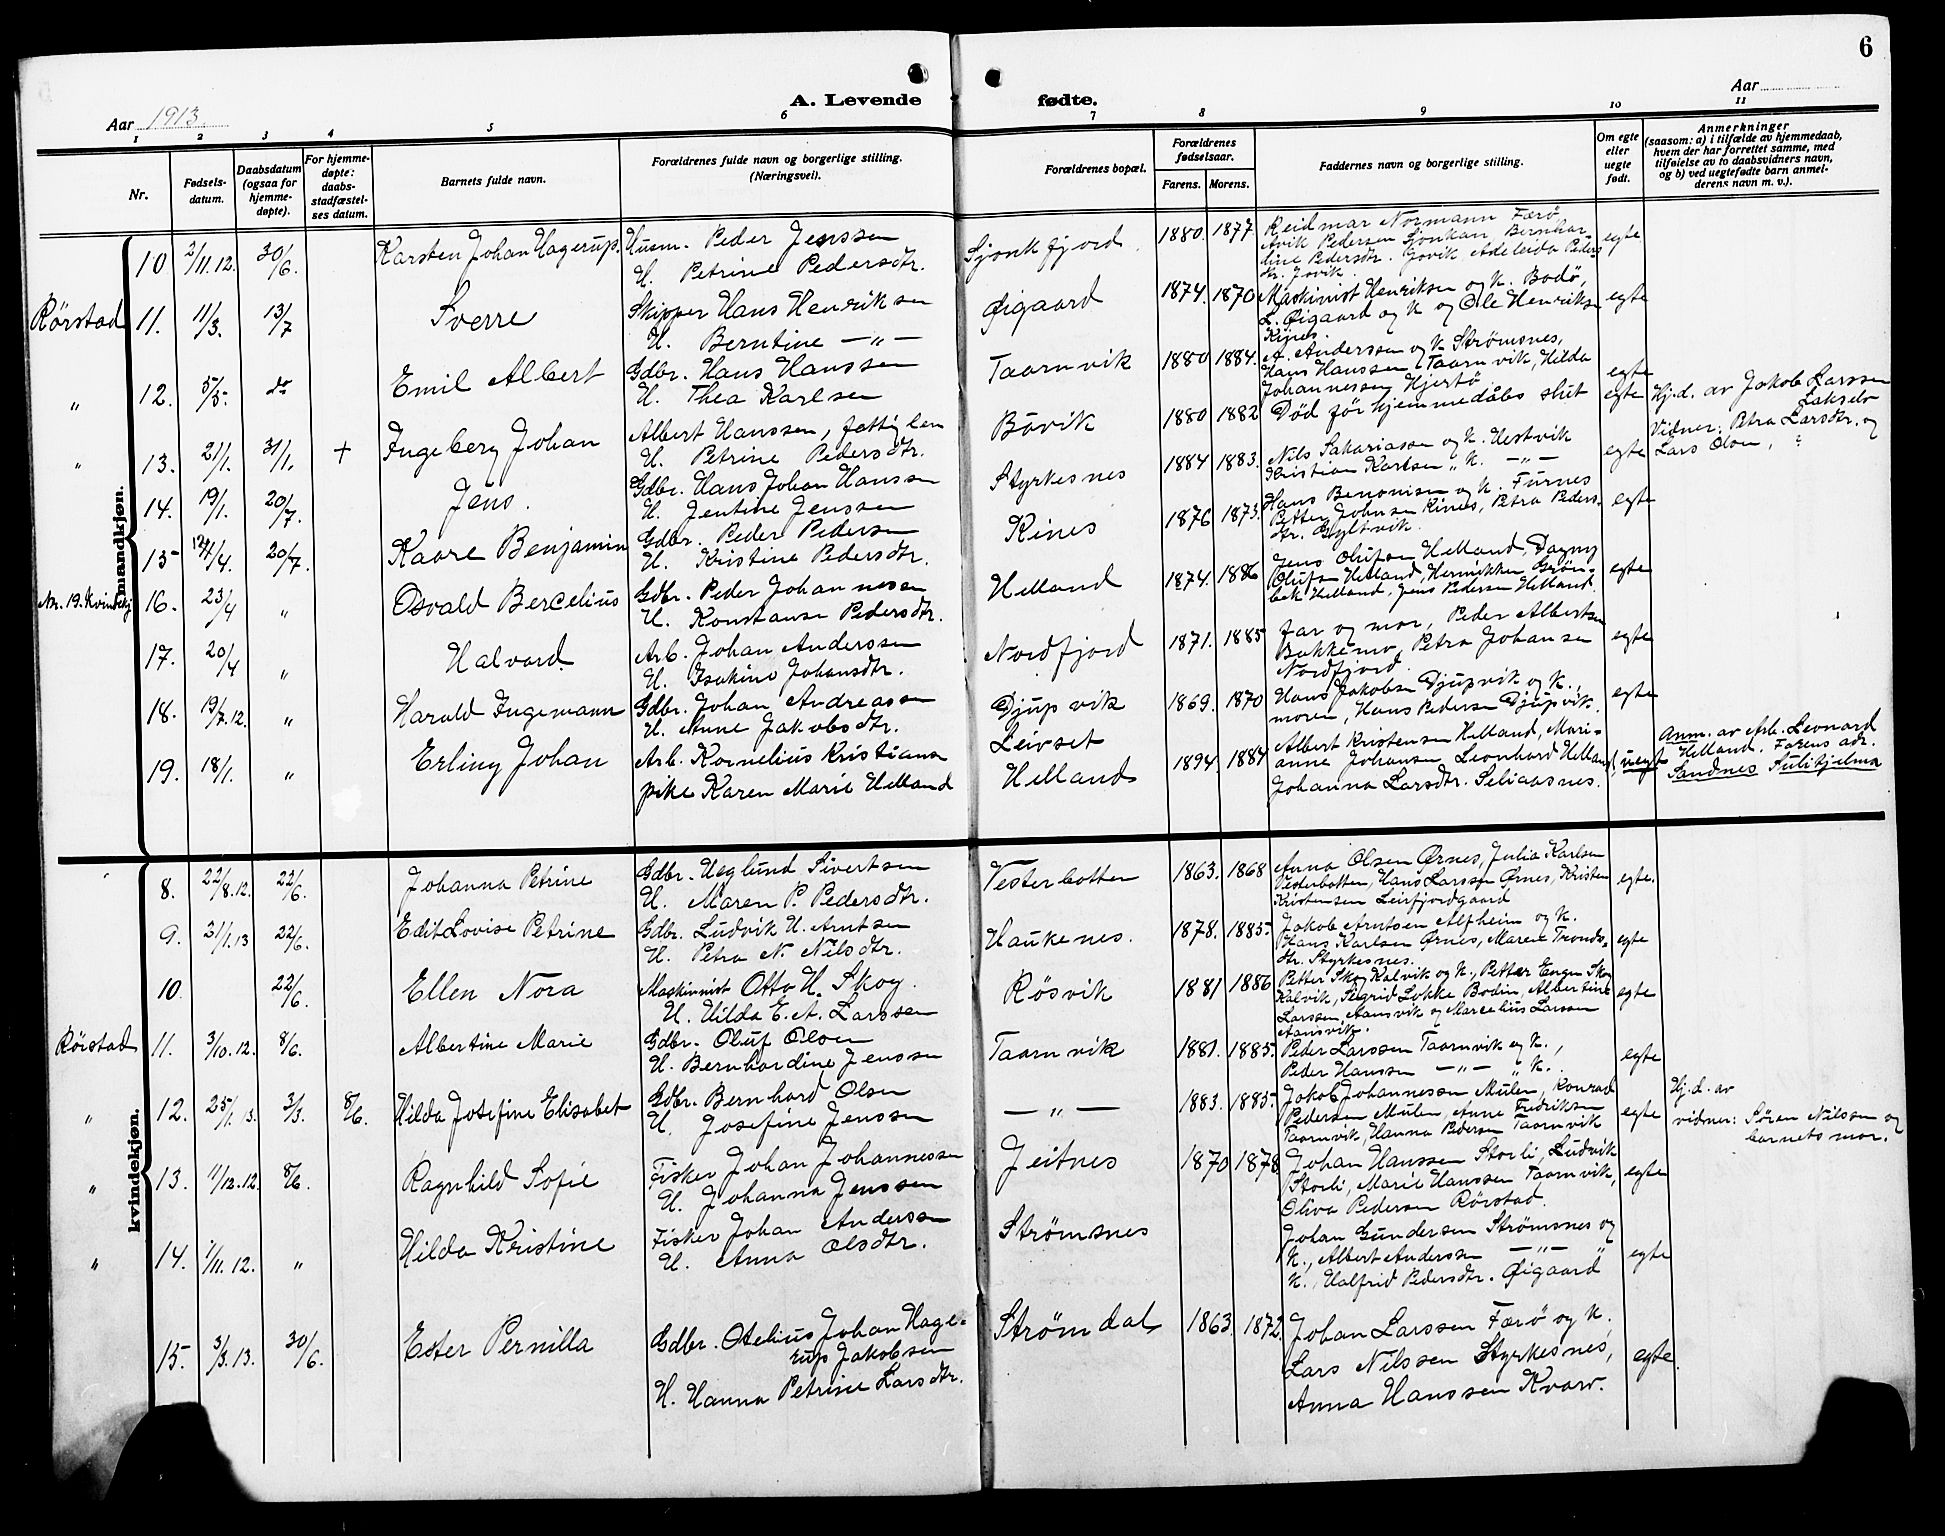 6
A. Levende fødte.
Aar 1913
Aar
1 2 3 4 5 6 7 8 9 10 11
Nr.
Fødsels-
datum.
Daabsdatum
(ogsaa for
hjemme-
døpte).
For hjemme-
døpte:
daabs-
stadfæstel-
ses datum.
Barnets fulde navn.
Forældrenes fulde navn og borgerlige stilling.
(Næringsvei).
Forældrenes bopæl.
Forældrenes
fødselsaar.
Farens. Morens.
Faddernes navn og borgerlige stilling.
Om egte
eller
uegte
født.
Anmerkninger
(saasom: a) i tilfælde av hjemmedaab,
hvem der har forrettet samme, med
tilføielse av to daabsvidners navn,
og b) ved uegtefødte barn anmel-
derens navn m. v.).
mandkjøn.
10 2/11.12. 30/6. Karsten Johan Hagerup. Husm. Peder Jenssen
H. Petrine Pedersdtr.
Sjonkfjord. 1880. 1877
Reidmar Normann Færø,
Avik Pedersen Sjonkan, Bernhar
dine Pedersdtr. Gjovik, Adeleida Peders
dtr. Jovik.
egte
Rörstad 11. 11/3. 13/7 Sverre Skipper Hans Henriksen
H. Berntine — " —
Øigaard 1874. 1870
Maskinist Henriksen og K. Bodø,
L. Øigaard og K og Ole Henriksen
Kines
egte
" 12. 5/5. do Emil Albert Gdbr. Hans Hanssen
H. Thea Karlsen
Taarnvik 1880 1884.
A. Anderssen og K Strömsnes,
Hans Hanssen Taarnvik, Hilda
Johannessen Hjertö
egte
" 13. 21/1. 31/1. + Ingeberg Johan Albert Hanssen, fattiglem
H. Petrine Pedersdtr.
Bövik 1880 1882 Död før hjemmedåbs shit egte
Hj.d. av Jakob Larssen
Lakselv
Vidner: Petra Larsdtr. og
Lars Olsen, "
14. 19/1. 20/7. Jens. Gdbr. Hans Johan Hanssen
H. Jentine Jenssen
Styrkesnes 1884 1883.
Nils Sakariassen og K. Hestvik
Kristian Karlsen " K. — " —
egte
15 /4. 20/7. Kaare Benjamin Gdbr. Peder Pedersen
H. Kristine Pedersdtr.
Kines 1876 1873.
Hans Benonisen og K. Furnes
Petter Johnsen Kines, Petra Peders-
dtr. Gyltvik.
egte
Nr. 19. Kvindekj. 16. 23/4 " Osvald Bercelius Gdbr. Peder Johannesen
H. Konstanse Pedersdtr.
Helland 1874. 1886
Jens Olufsen Helland, Dagny
Olufsen Helland, Henrikken Grøn-
bek Helland, Jens Pedersen Helland.
egte
17. 20/4 " Halvard. Arb. Johan Anderssen
H. Isakine Johansdtr.
Nordfjord 1871. 1885
far og mor, Peder Albertsen
Bakkemo, Petra Johansen
Nordfjord.
egte
18. 19/7.12. " Harald Ingemann Gdbr. Johan Andreassen
H. Anne Jakobsdtr.
Djupvik 1869. 1870
Hans Jakobsen Djupvik og K.,
moren, Hans Pedersen Djupvik.
egte
19. 18/1. " Erling Johan Arb. Kornelius Kristians
pike Karen Marie Helland
Leivset
Helland 1894 1884
Albert Kristensen Helland, Mari-
anne Johansen, Leonhard Helland,
Johanna Larsdtr. Seliaasnes.
uegt
Anm. av Arb. Leonard
Helland. Farens adr.
Sandnes Sulitjelma
kvindekjøn.
8. 22/8.12. 22/6. Johanna Petrine Gdbr. Heglund Sivertsen
H. Maren P. Pedersdtr.
Vesterbotten 1863. 1868
Anna Olsen Ørnes, Julia Karlsen
Vesterbotten, Hans Larssen Ørnes, Kristen
Kristensen Leirfjordgaard
egte.
9. 21/1.13 22/6. Edit Lovise Petrine Gdbr. Ludvik H. Arntsen
H. Petra N. Nilsdtr.
Haukenes. 1878. 1885-
Jakob Arntsen Alfheim og K.
Hans Karlsen Ørnes, Maren Tronds-
dtr. Styrkesnes.
egte
10 22/6. Ellen Nora Maskinist Otto H. Skog.
H. Hilda E. A. Larssen
Rösvik 1881 1886
Petter Skog Kalvik og K., Petter Enge Skog
Kalvik, Sigrid Løkke Bodin, Albertine
Larssen Aansvik og Marcelius Larssen
Aansvik.
egte
Rörstad 11. 3/10.12. 8/6. Albertine Marie Gdbr. Oluf Olsen
H. Bernhardine Jenssen
Taarnvik 1881. 1885.
Peder Larssen Taarnvik og K.,
Peder Hanssen — " — " K..
egte
" 12. 25/1.13. 3/3. 8/6. Hilda Josefine Elisabet Gdbr. Bernhard Olsen
H. Josefine Jenssen
— " — 1883. 1885-
Jakob Johannessen Mulen, Konrad
Pedersen Mulen, Anne Fredriksen
Taarnvik, Hanna Pedersen Taarnvik
egte
Hj.d. av
vidner: Søren Nilssen og
barnets mor.
" 13. 1/12.12. 8/6. Ragnhild Sofie Fisker Johan Johannessen
H. Johanna Jenssen
Jeitnes 1870 1878
Johan Hanssen Storli, Ludvik
Storli, Marie Hanssen Taarnvik,
Oliva Pedersen Rörstad.
egte
" 14. 1/11.12. " Hilda Kristine Fisker Johan Anderssen
H. Anna Olsdtr.
Strømsnes
Johan Gundersen Strømsnes og
K., Albert Anderssen — " — "
K., Halfrid Pedersdtr. Øigaard
egte
15. 3/3.13. 30/6. Ester Pernilla Gdbr. Otelius Johan Hage-
rup Jakobsen
H. Hanna Petrine Larsdtr.
Strömdal 1863 1872.
Johan Larssen Færø og K.
Lars Nilssen Styrkesnes,
Anna Hanssen Kvarv.
egte.